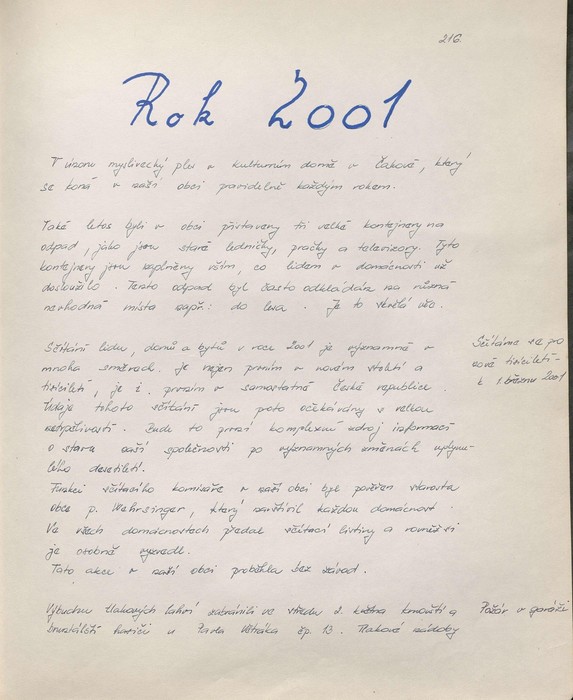 216
Rok 2001
V únoru myslivecký ples v kulturním domě v Čakově, který
se koná v naší obci pravidelně každým rokem.
Také letos byli v obci přistaveny tři velké kontejnery na
odpad, jako jsou staré ledničky, pračky a televizory. Tyto
kontejnery jsou zaplněny vším, co lidem v domácnosti už
dosloužilo. Tento odpad byl často odkládán na různá
nevhodná místa např.: do lesa. Je to skvělá věc.
Sčítání lidu, domů a bytů v roce 2001 je významné v
mnoha směrech. Je nejen prvním v novém století a
tisíciletí, je i prvním v samostatné České republice.
Údaje tohoto sčítání jsou proto očekávány s velkou
netrpělivostí. Bude to první komplexní zdroj informací
o stavu naší společnosti po významných změnách uplynu-
lého desetiletí.
Sčítáme se po
nové tisíciletí -
k 1. březnu 2001
Funkcí sčítacího komisaře v naší obci byl pověřen starosta
obce p. Wehrsinger, který navštívil každou domácnost.
Ve všech domácnostech předal sčítací listiny a rovněž si
je osobně vyzvedl.
Tato akce v naší obci proběhla bez závad.
Výbuchu tlakových lahví zabránili ve středu 2. května krnovští a
bruntálští hasiči u Pavla Větráka čp. 13. Tlakové nádoby
Požár v garáži